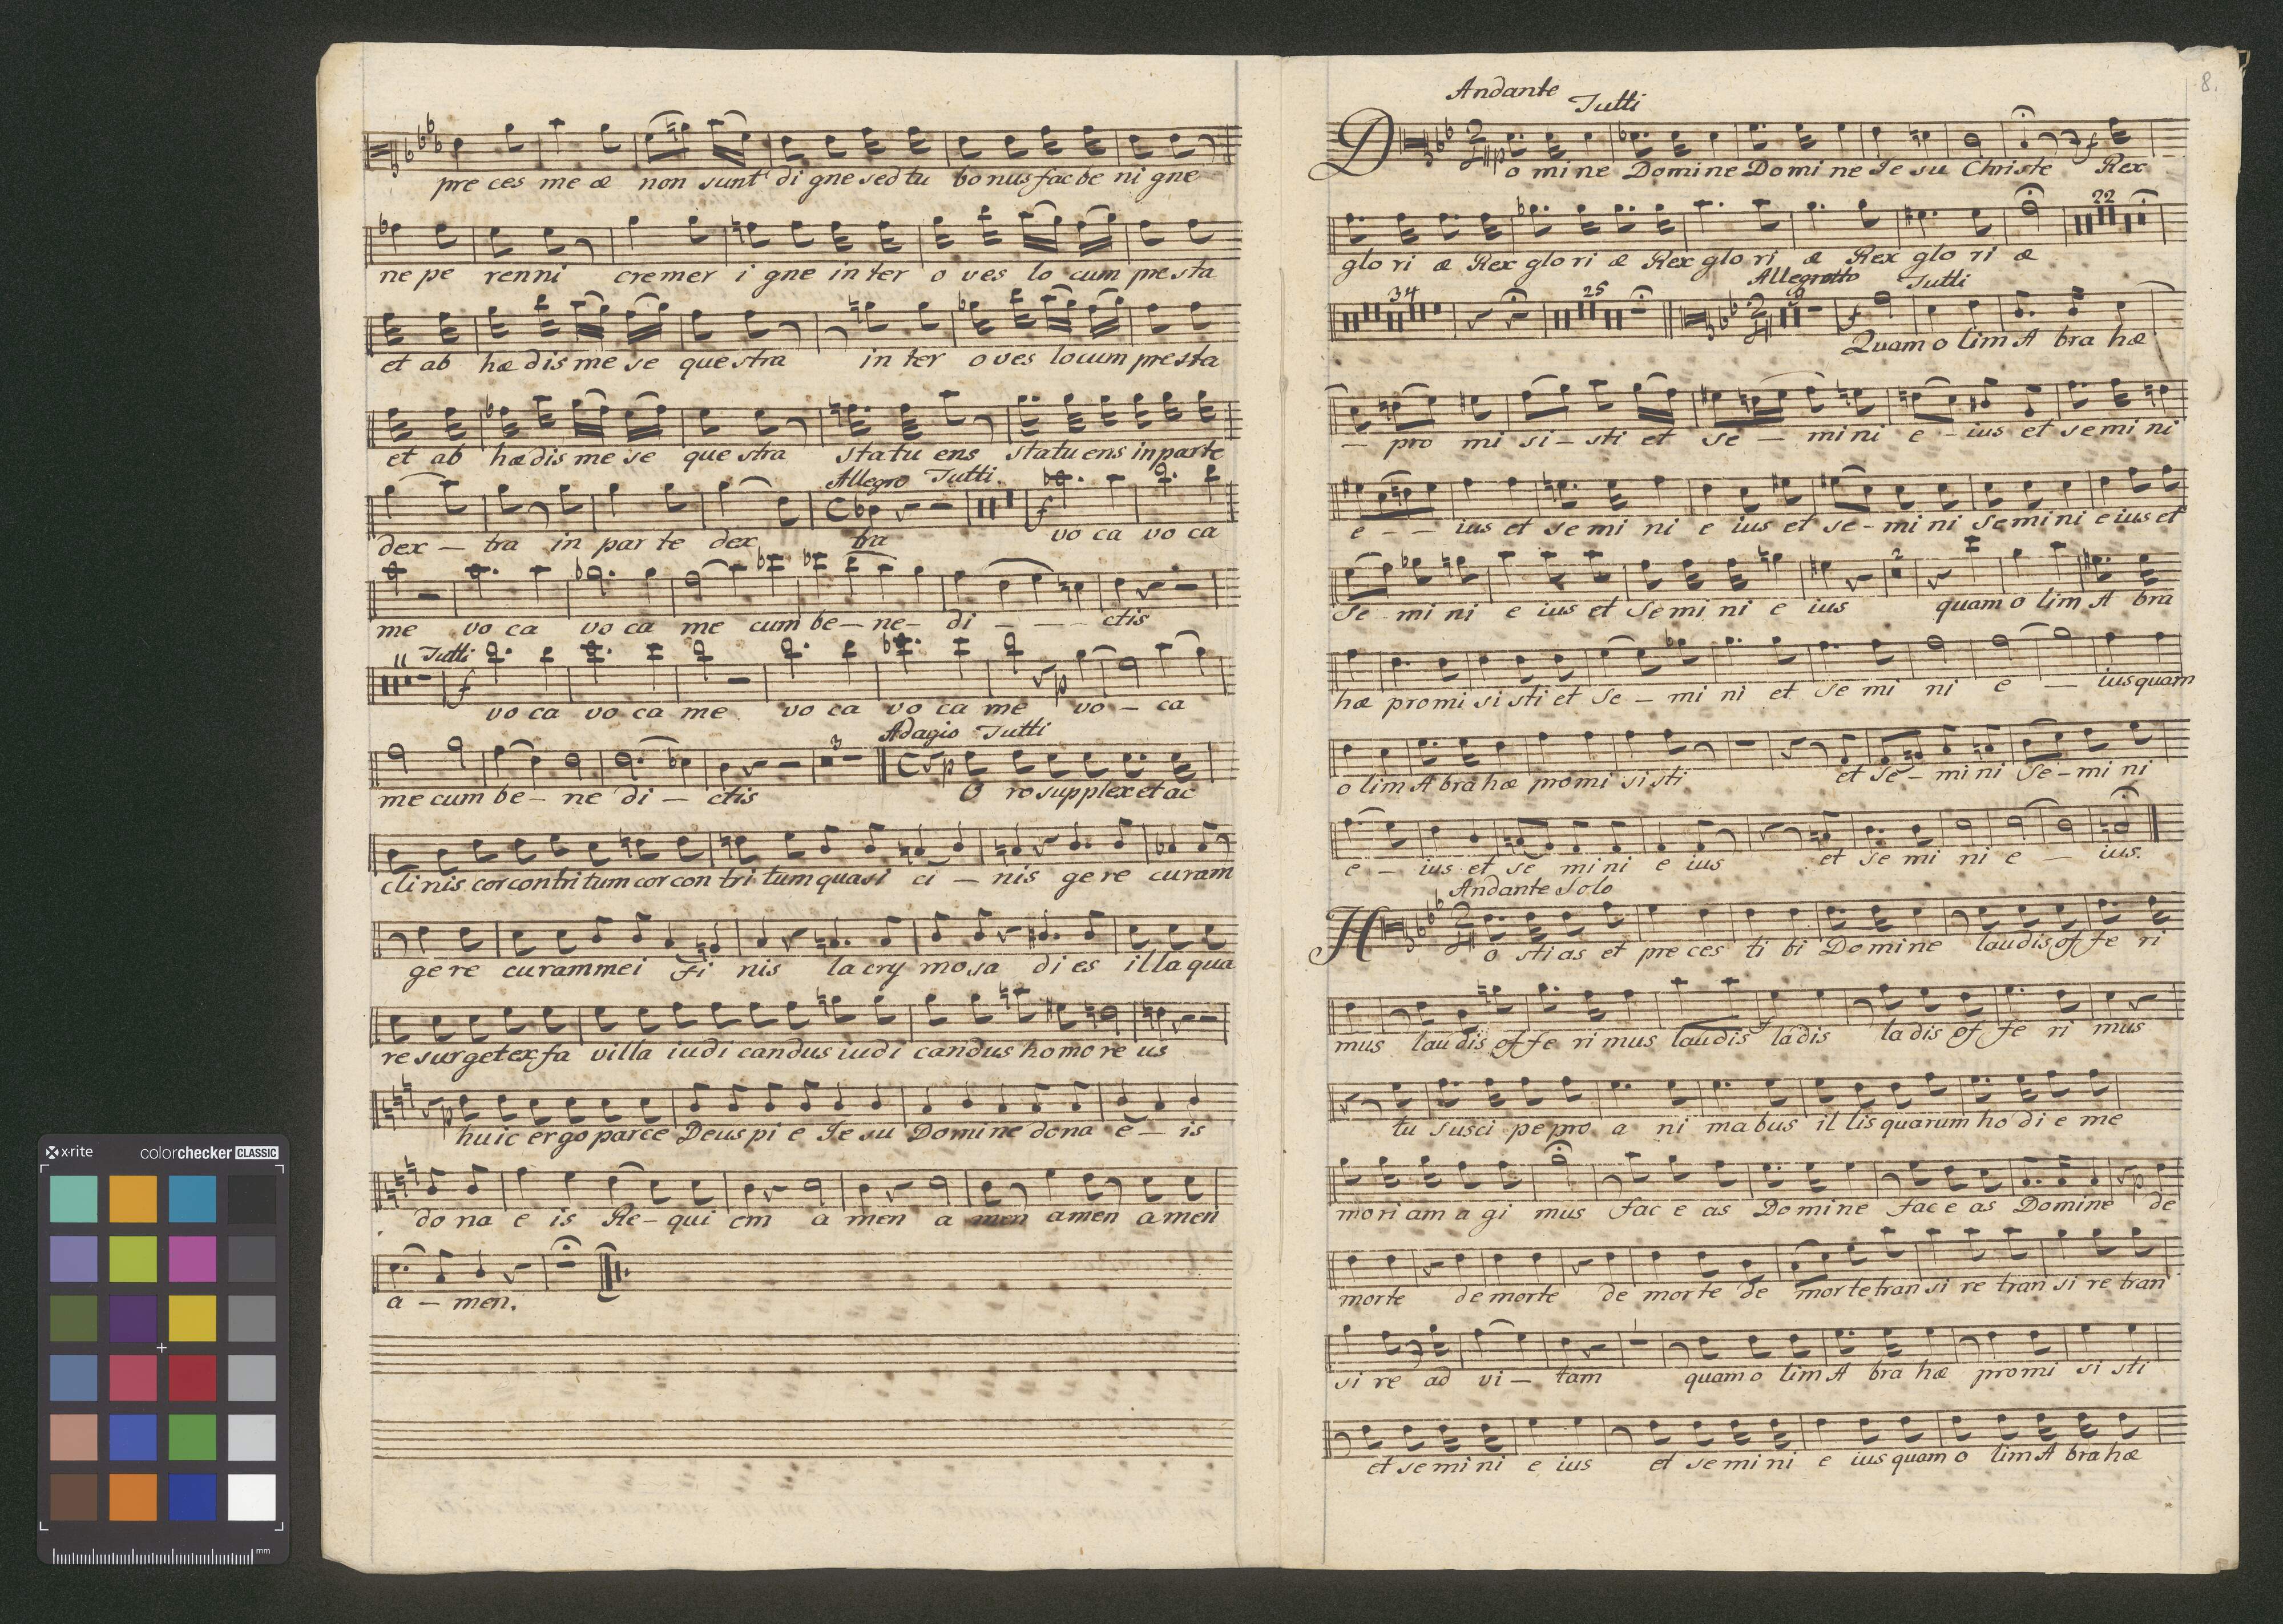 pre ces me æ non sunt di gne sed tu bo nus fac be ni gne
ne pe renni cremer i gne in ter o ves lo cum pre sta
et ab hæ dis me se que stra in ter o ves lo cum pre sta
et ab hæ dis me se que stra sta tu ens sta tu ens in parte
Allegro Tutti.
f
dex – tra in par te dex tra vo ca vo ca
me vo ca vo ca me cum be – ne – di – – – ctis
11 Tutti
f p
vo ca vo ca me vo ca vo ca me vo – ca
Adagio Tutti
3 p
me cum be – ne di – ctis O ro supplex et ac
cli nis cor contri tum cor con tri tum quasi ci – nis ge re curam
ge re curam mei fi nis la cry mo sa di es il la qua
re surget ex fa villa iudi candus iudi candus homo re us
p
huic ergo parce Deus pi e Ie su Domine dona e – is
do na e is Re – qui em a men a men amen amen
a – men.
8.
Andante Tutti
p f
Do mi ne Domine Domi ne Ie su Christe Rex
22
glo ri æ Rex glo ri æ Rex glo ri æ Rex glo ri æ
34 25 Allegretto 9 Tutti
f
Quam o lim A bra hæ
– pro mi si – sti et se – mi ni e – ius et se mi ni
e – – ius et se mi ni e ius et se – mi ni se mi ni e ius et
2
se – mi ni e ius et se mi ni e ius quam o lim A bra
hæ promi si sti et se – mi ni et se mi ni e – ius quam
o lim A bra hæ promi si sti et se – mi ni se – mi ni
e – ius et se mi ni e ius et se mi ni e – ius.
Andante Solo
Ho sti as et pre ces ti bi Do mi ne laudis of fe ri
f
mus laudis of fe ri mus laudis ladis la dis of fe ri mus
tu susci pe pro a ni ma bus il lis quarum ho di e me
p
mo ri am a gi mus fac e as Do mi ne fac e as Domine de
morte de morte de mor te de morte tran si re tran si re tran
si re ad vi – tam quam o lim A bra hæ pro mi si sti
et se mi ni e ius et se mi ni e ius quam o lim A bra hæ
x-rite colorchecker CLASSIC
mm